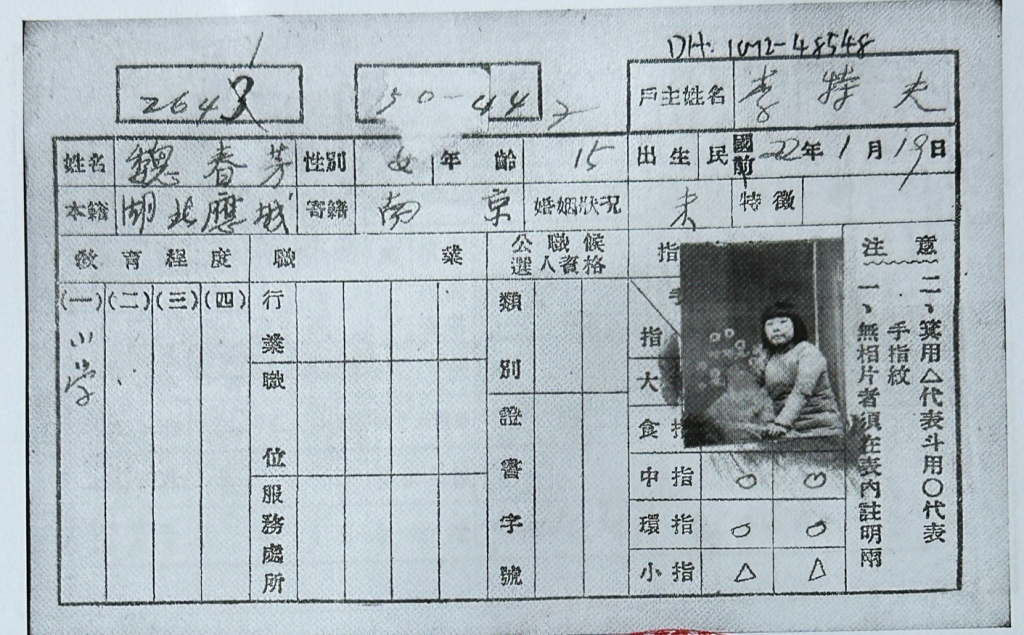 DH: 1072-48548
2643
50-44 2
戶主姓名 李特夫
姓名 魏春芳 性別 女 年齡 15 出生 民國前 22年1月19日
本籍 湖北應城 寄籍 南京 婚姻狀況 未 特徵
教育程度 職業 公職候選人資格 指
(一) (二) (三) (四)
小学
行業
職位
服務處所
類別
證書字號
手
指
大
食指
中指 ○ ○
環指 ○ ○
小指 △ △
注意
一、無相片者須在表內註明兩手指紋
二、箕用△代表斗用○代表